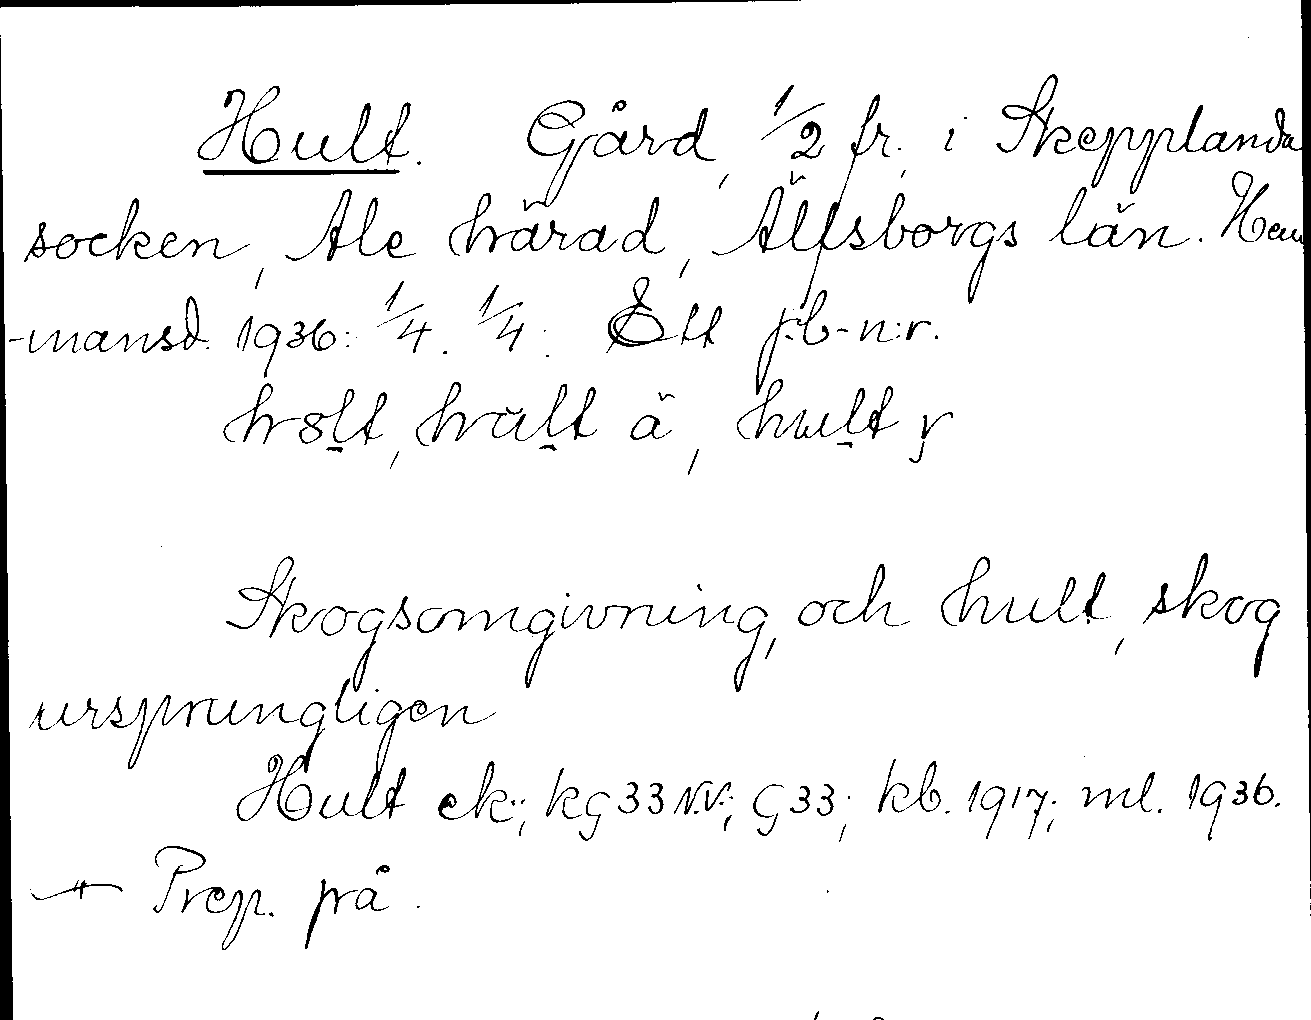 Hult. Gård, 1/2 fr. i Skepplanda
socken, Ale härad, Älfsborgs län. Hem
-mansd. 1936: 1/4. 1/4. Ett jb-n:r.
hult y
Skogsomgivning, och hult, skog
ursprungligen
Hult ek.; kg 33 NV; G 33; kb. 1917; ml. 1936.
Prep. på.